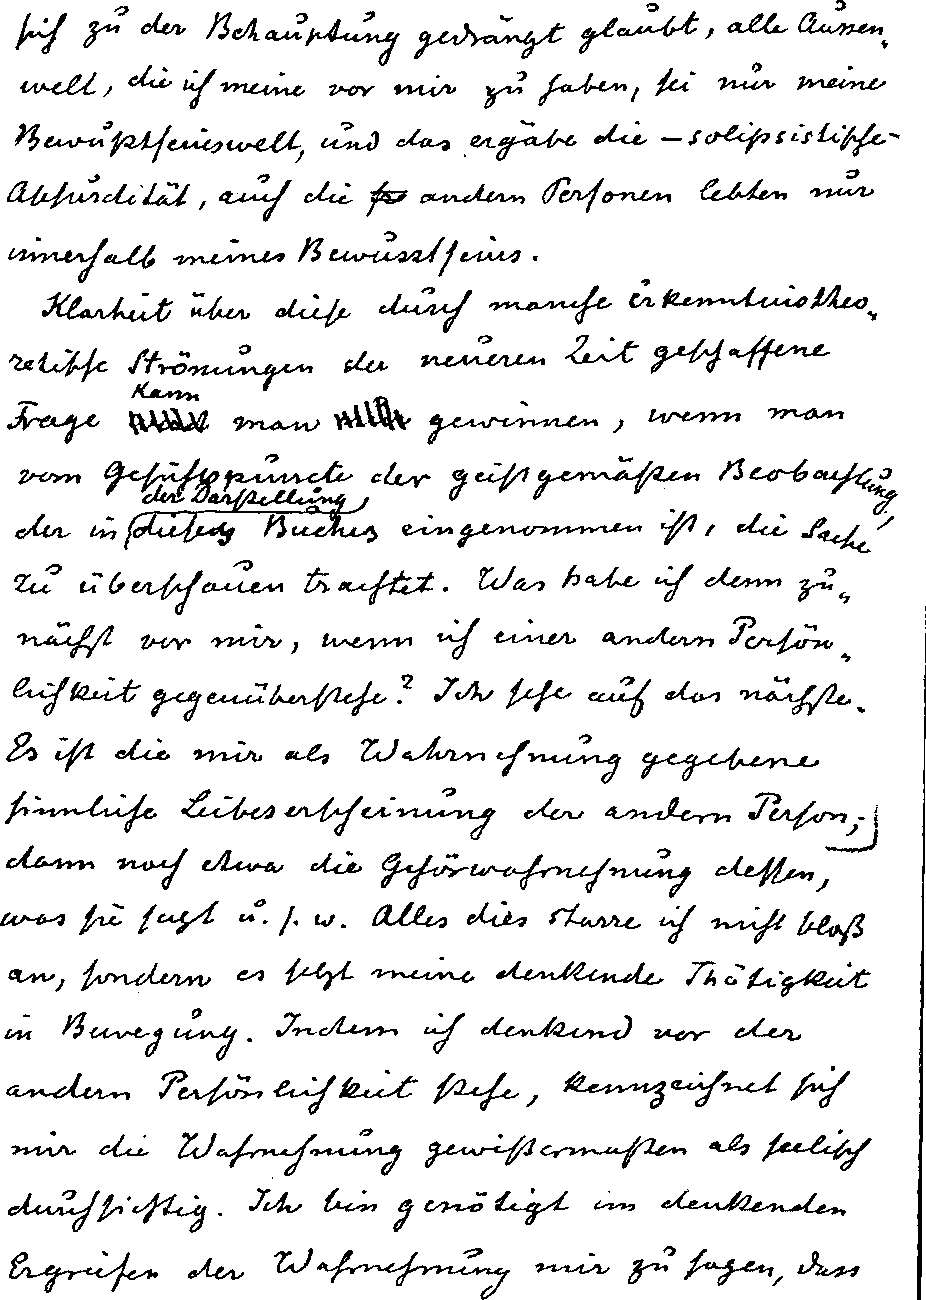 sich zu der Behauptung gedrängt glaubt, alle Aussen„
welt, die ich meine vor mir zu haben, sei nur meine
Bewußtseinswelt, und das ergäbe die – solipsistische –
Absurdität, auch die andern Personen lebten nur
innerhalb meines Bewusstseins.
Klarheit über diese durch manche erkenntnistheo„
retische Strömungen der neueren Zeit geschaffene
Kann
Frage man gewinnen, wenn man
vom Gesichtspuncte der geistgemäßen Beobachtung,
der Darstellung
der in dieses Buches eingenommen ist, die Sache
zu überschauen trachtet. Was habe ich denn zu„
nächst vor mir, wenn ich einer andern Persön„
lichkeit gegenüberstehe? Ich sehe auf das nächste.
Es ist die mir als Wahrnehmung gegebene
sinnliche Leibeserscheinung der andern Person;
dann noch etwa die Gehörwahrnehmung dessen,
was sie sagt u. s. w. Alles dies starre ich nicht bloß
an, sondern es setzt meine denkende Thätigkeit
in Bewegung. Indem ich denkend vor der
andern Persönlichkeit stehe, kennzeichnet sich
mir die Wahrnehmung gewißermaßen als seelisch
durchsichtig. Ich bin genötigt im denkenden
Ergreifen der Wahrnehmung mir zu sagen, dass